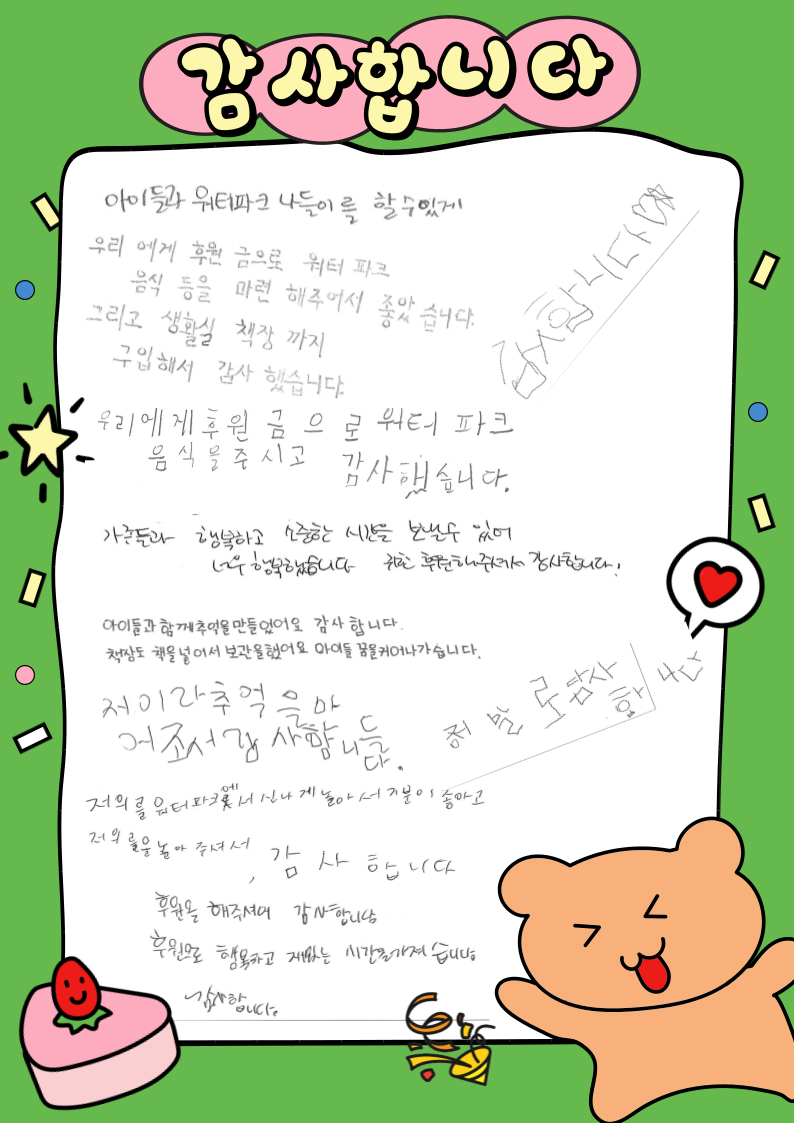 감사합니다
아이들과 워터파크 나들이를 할 수 있게
감사합니다
우리 에게 후원 금으로 워터 파크
음식 등을 마련 해주어서 좋았 습니다.
그리고 생활실 책장 까지
구입해서 감사 했습니다.
우리에게 후원 금 으 로 워터 파크
음식 을 주시고 감사했습니다.
가족들과 행복하고 소중한 시간을 보낼 수 있어
너무 행복했습니다 후원해주셔서 감사합니다!
아이들과 함께 추억을 만들었어요 감사 합니다.
책장도 책을 넣어서 보관을했어요 아이들 꿈을키어나가습니다.
저이라추억을마
어조서감사함니들다.
정말로 감사
합니다
저의를 워터파크에서 신나게 놀아서 기분이 좋아고
저의를 놀아 주셔서, 감 사 합 니다
후원을 해주셔서 감사합니다
후원으로 행복하고 재밌는 시간을가져 습니다
감사합니다.